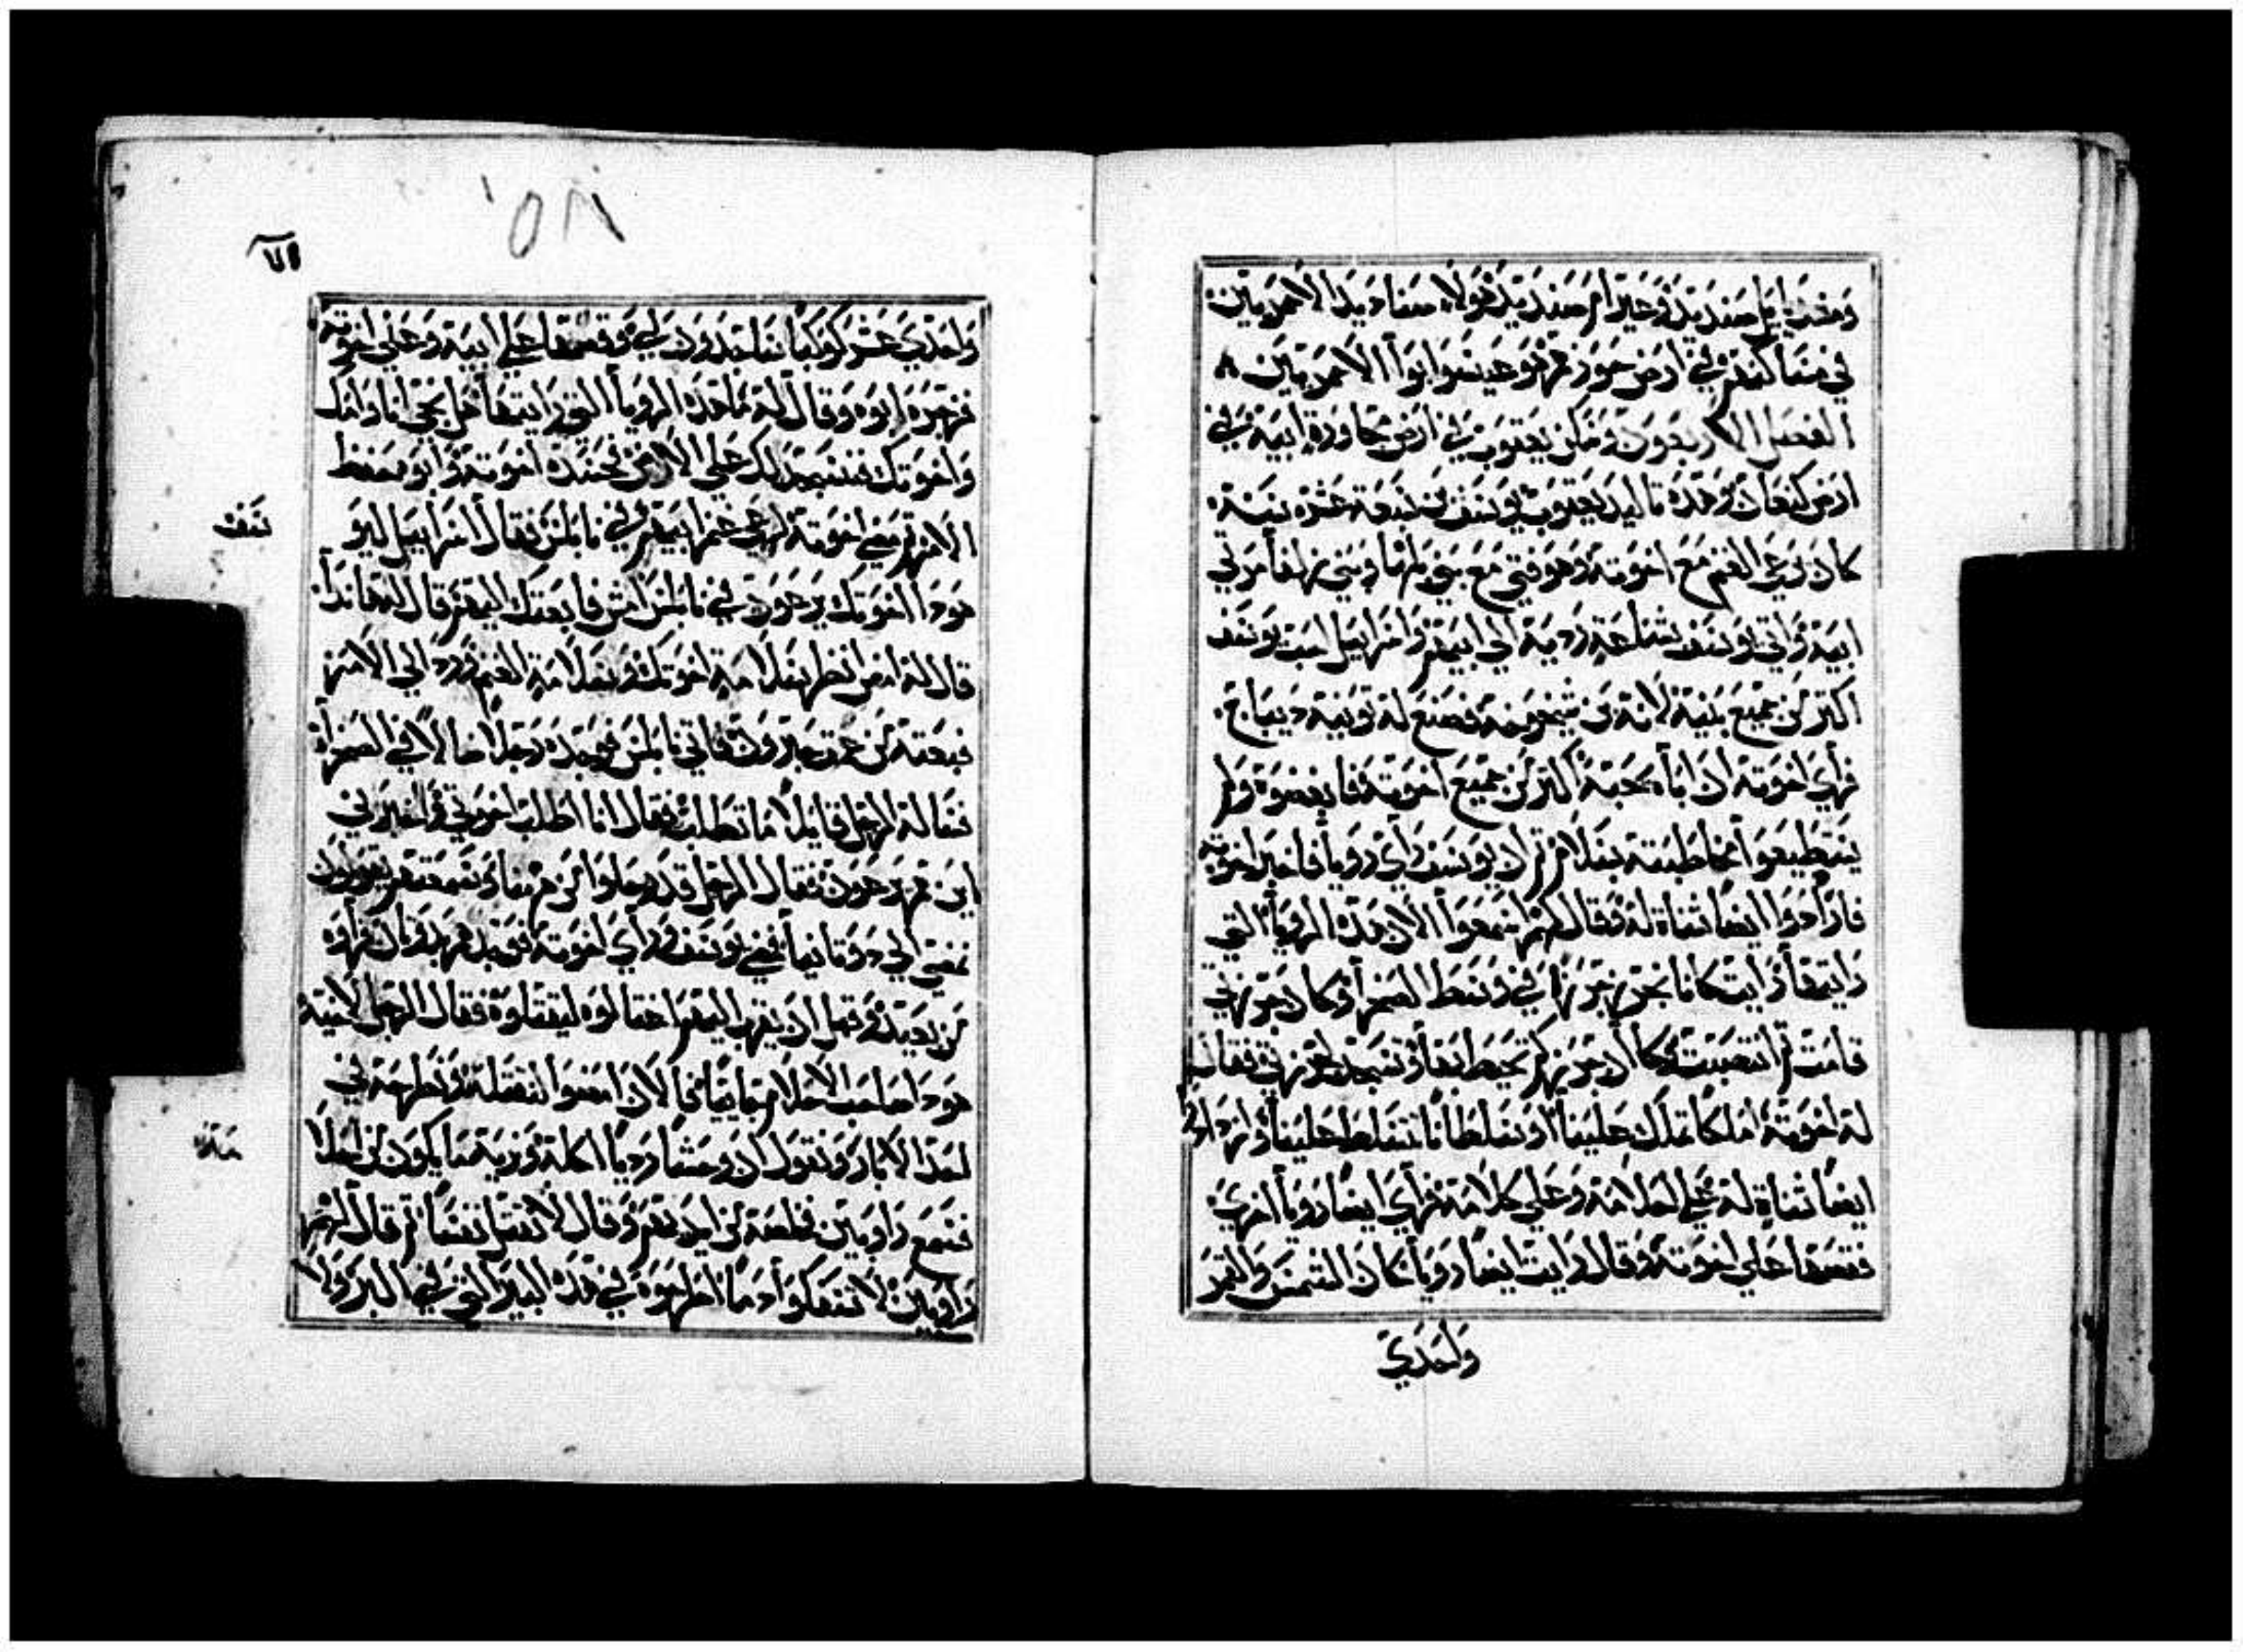 ومغديايل صنديد وعيرام صنديد هولاء صناديد الادميين
في مساكنهم في ارض حوزهم هو عيسوا ابوا الادميين
الفصل الاربعون وسكن يعقوب في ارض مجاورة ابيه في
ارض كنعان وهذه تاليد يعقوب يوسف بن سبعة عشره سنة
كان يرعى الغنم مع اخوته وهو فتي مع بني بلها وبني زلفا مرتي
ابيه واتي يوسف بشناعة ردية الي ابيهم واسراييل احب يوسف
اكثر من جميع بنيه لانه بن شيخوخة فصنع له تونية ديباج
فراي اخوته ان اباه يحبه اكثر من جميع اخوته فابغضوه ولم
يستطيعوا مخاطبته بسلام ثم ان يوسف راي رويا فاخبر اخوته
فازدادوا ايضا شناة له فقال لهم اسمعوا الان هذه الرويا التي
رايتها رايت كانا نحزم حزما في وسط الصحرا وكان حزمتي
قامت ثم انتصبت وكاان حزمكم تحيط بها وتسجد لحزمتي فقال
له اخوته املكا تملك علينا او تسلطا نا تتسلط علينا وازدادوا
ايضا شناة له علي احلامه وعلي كلامه فراي ايضا رويا اخري
فقصها علي اخوته وقال رايت ايضا رويا كان الشمس والقمر
واحدي
١٥٨
٧١
واحدي عشر كوكبا ساجدون لي وقصها علي ابيه وعلي اخوته
فزجره ابوه وقال له ما هذه الرويا التي رايتها هل نجي انا وامك
واخوتك فنسجد لك علي الارض فحسده اخوته وابوه حفظ
الامر ثم مضي اخوته لرعي غنم ابيهم في نابلس فقال اسراييل ليو
سف
هودا اخوتك يرعون في نابلس امض فابعتك اليهم قال له هانذا
قال له امض انظر سلامة اخوتك وسلامة الغنم ورد الي الامر
فبعته من عمق حبرون فاتي نابلس فوجده رجلا ضالا في الصحراء
فساله الرجل قايلا ما تطلب فقال انا اطلب اخوتي فاخبرني
اين هم يرعون فقال الرجل قد رحلوا من هاهنا وسمعتهم يقولون
نمضي الي دوتانيا فمضي يوسف وراي اخوته فوجدهم بدوتان فراوه
من بعيد وقبل ان يقرب اليهم احتالوه ليقتلوه فقال الرجل لاخيه
هودا صاحب الاحلام جايا فالان امضوا لنقتله ونطرحه في
احد الابار ونقول ان وحشا رديا اكله وننظر ما يكون من احلا
مه
فسمع راوبين فخلصه من ايديهم وقال لا نقتل نفسا ثم قال لهم
راوبين لا تسفكوا دما اطرحوه في هذه البير التي في البر ولا